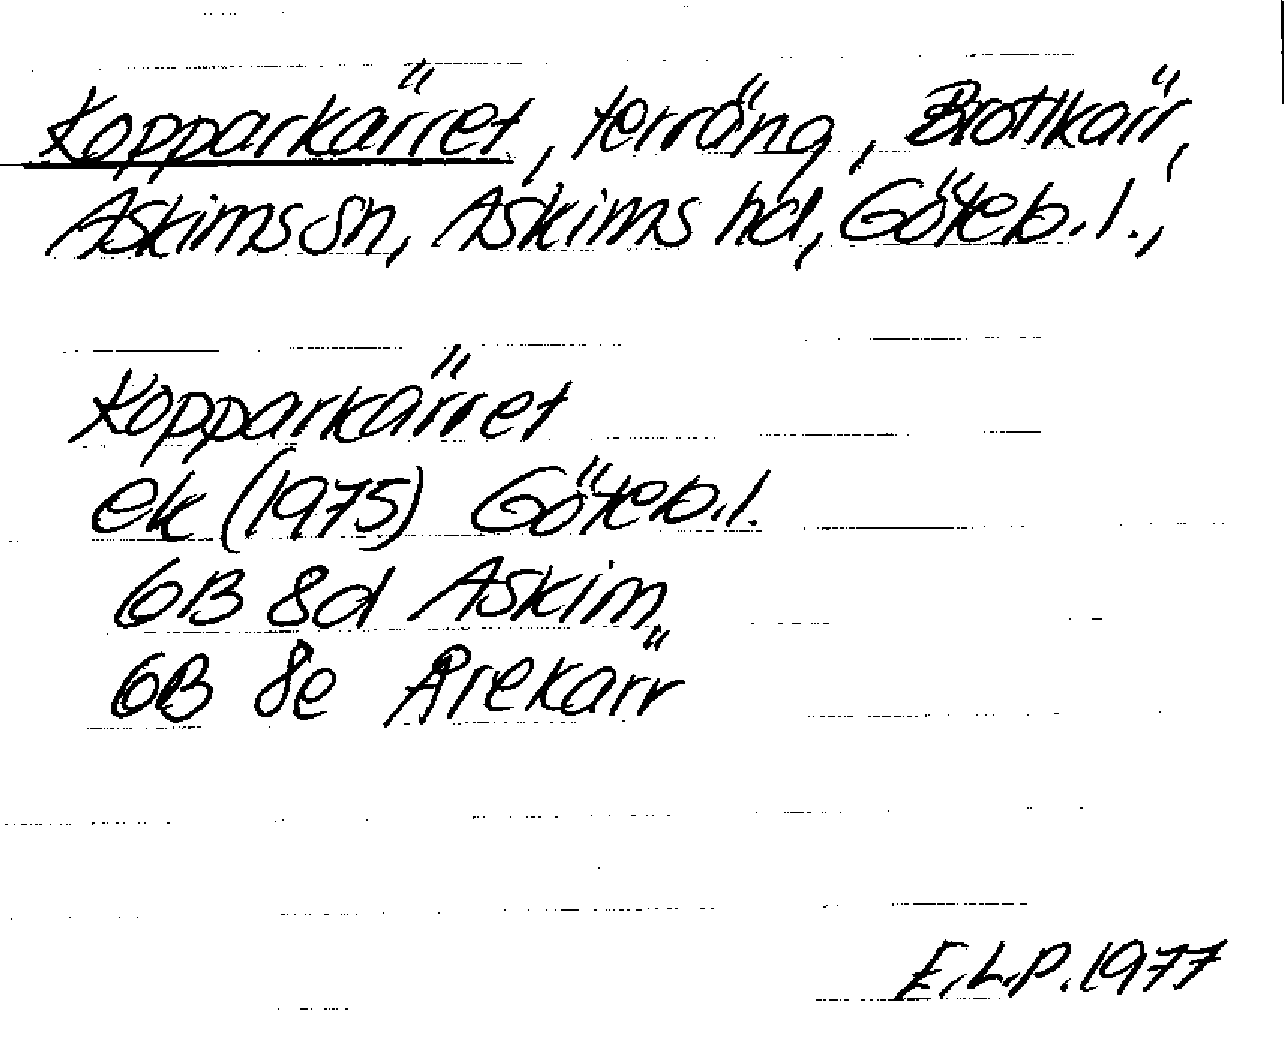 Kopparkärret, terräng, Brottkärr,
Askims sn, Askims hd, Göteb. l.,
Kopparkärret
ek (1975) Göteb. l.
6B 8d Askim
6B 8e Årekärr
E.L.P. 1977